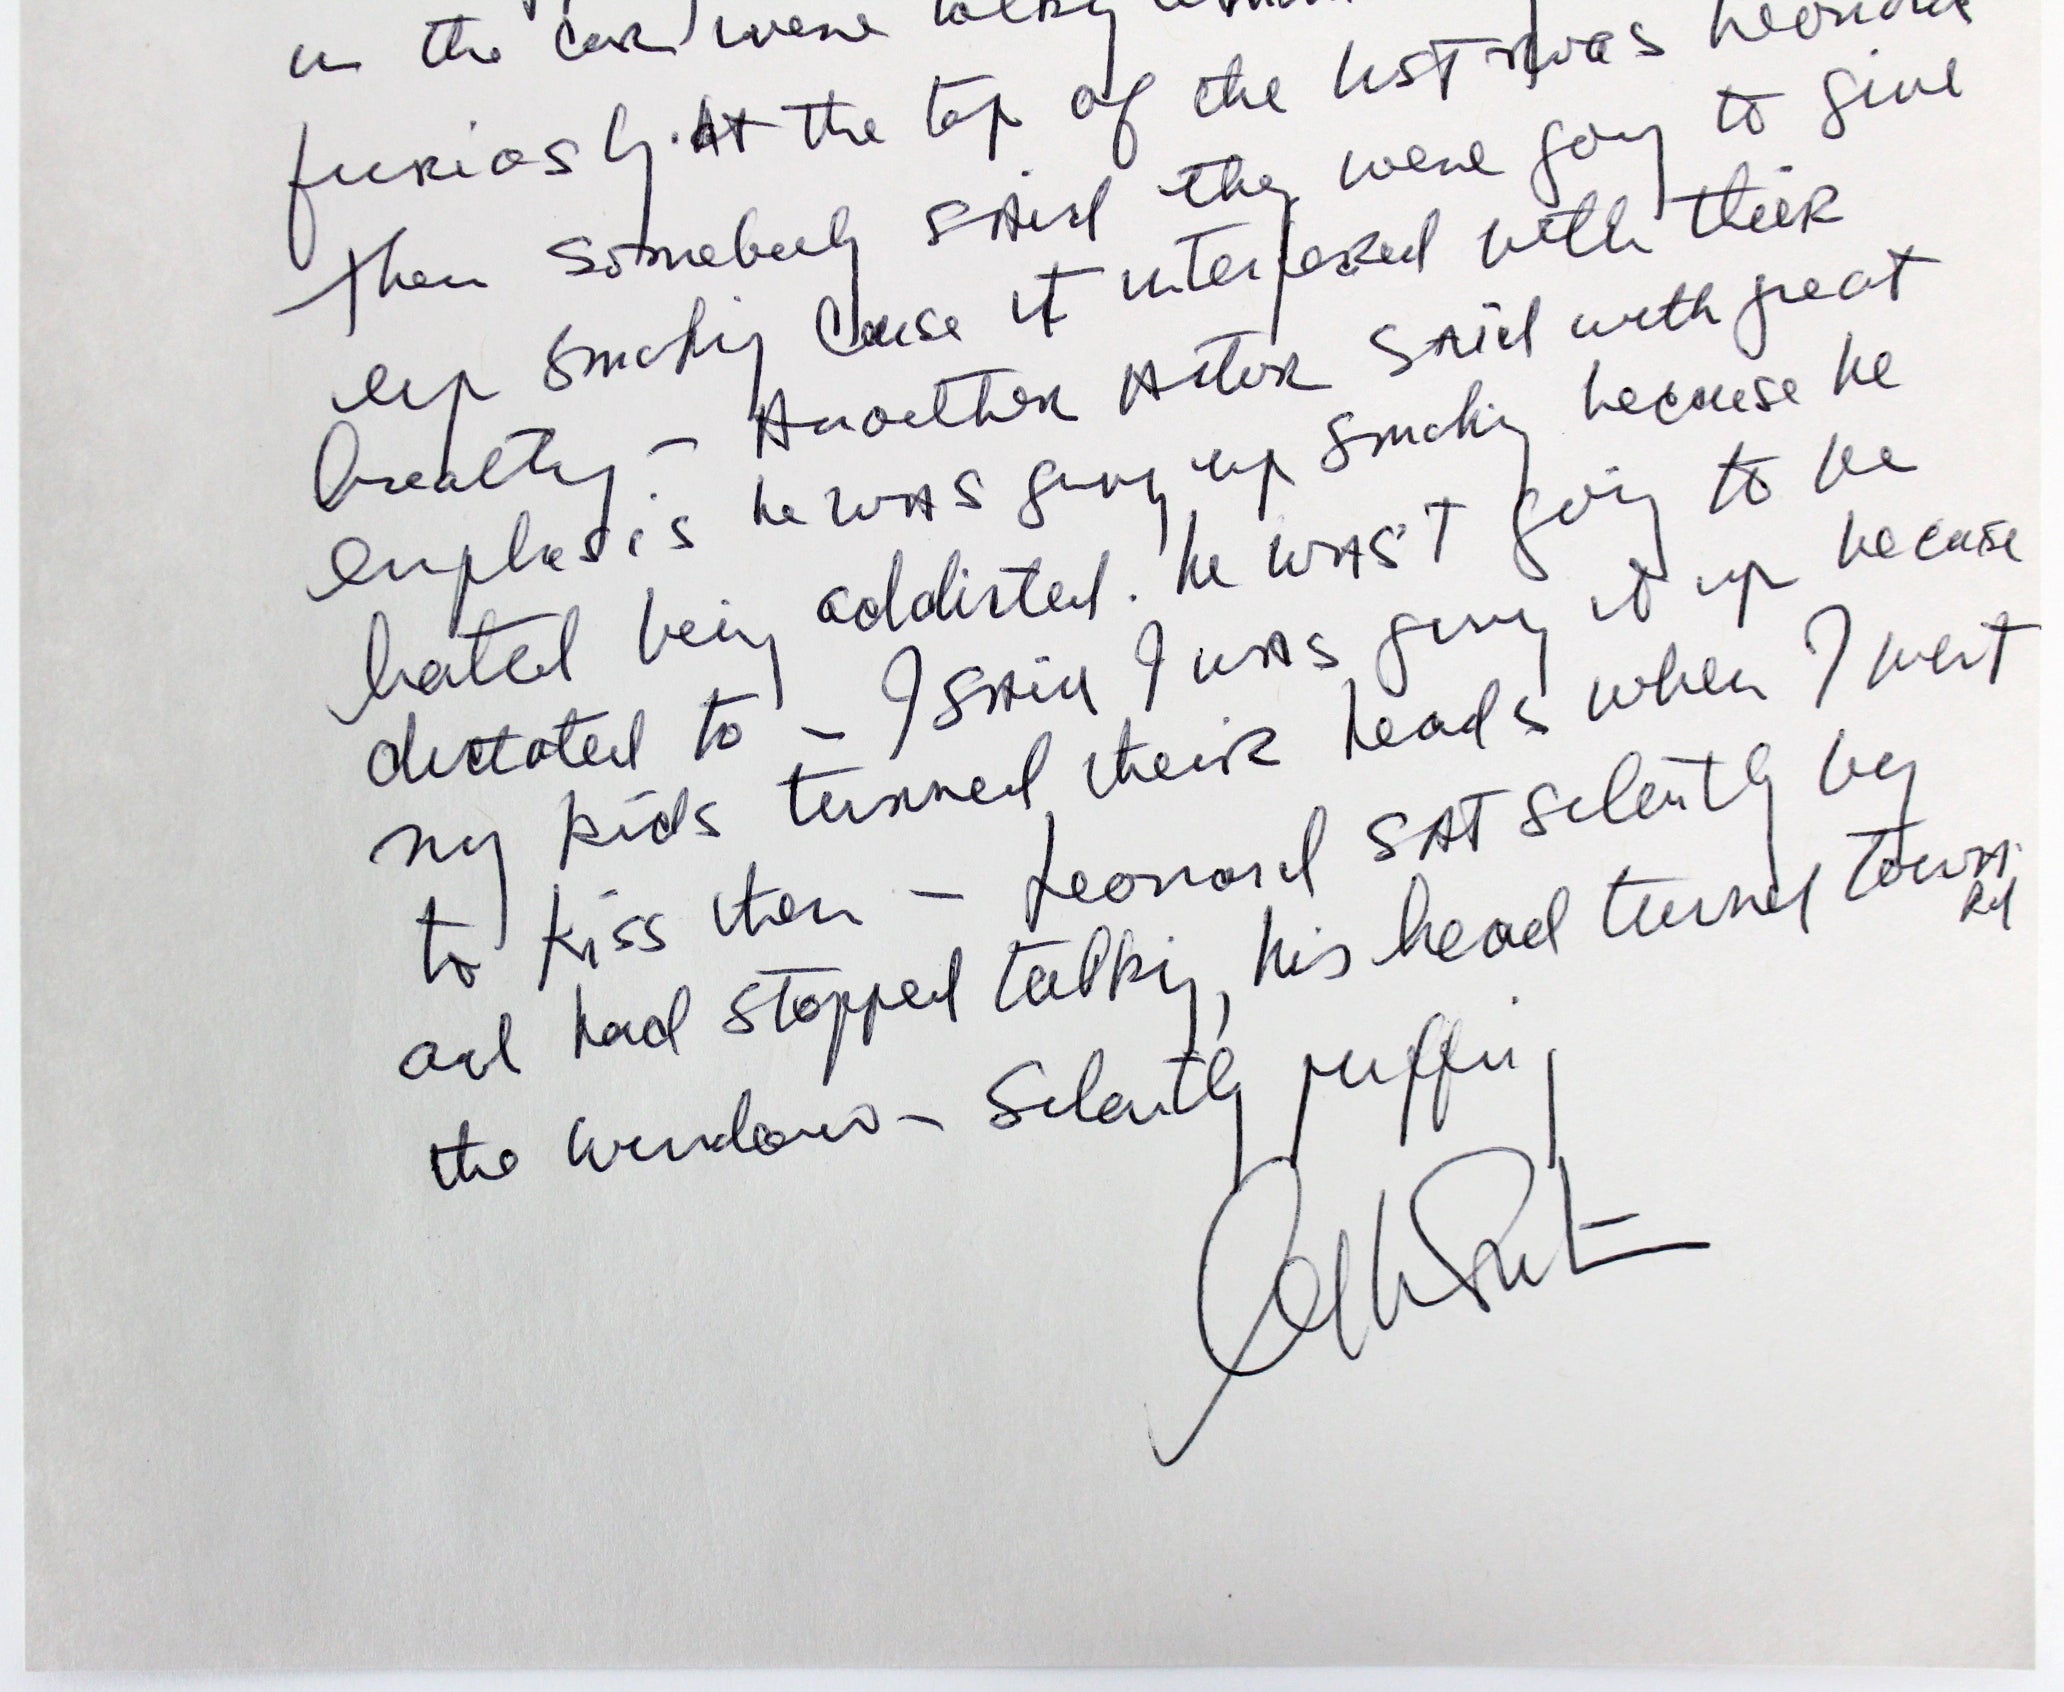 in the car were talking
furiosly. At the top of the list was Leonard
Then somebody said they were going to give
up smoking cause it interfered with their
breathing - Another Actor said with great
emphasis he was giving up smoking because he
hated being addicted. he was't going to be
dictated to - I said I was giving it up because
my kids turned their heads when I went
to kiss them - Leonard sat silently by
and had stopped talking, his head turned toward
the window - Silently puffing